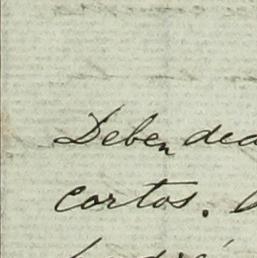 Deben ded
cortos.